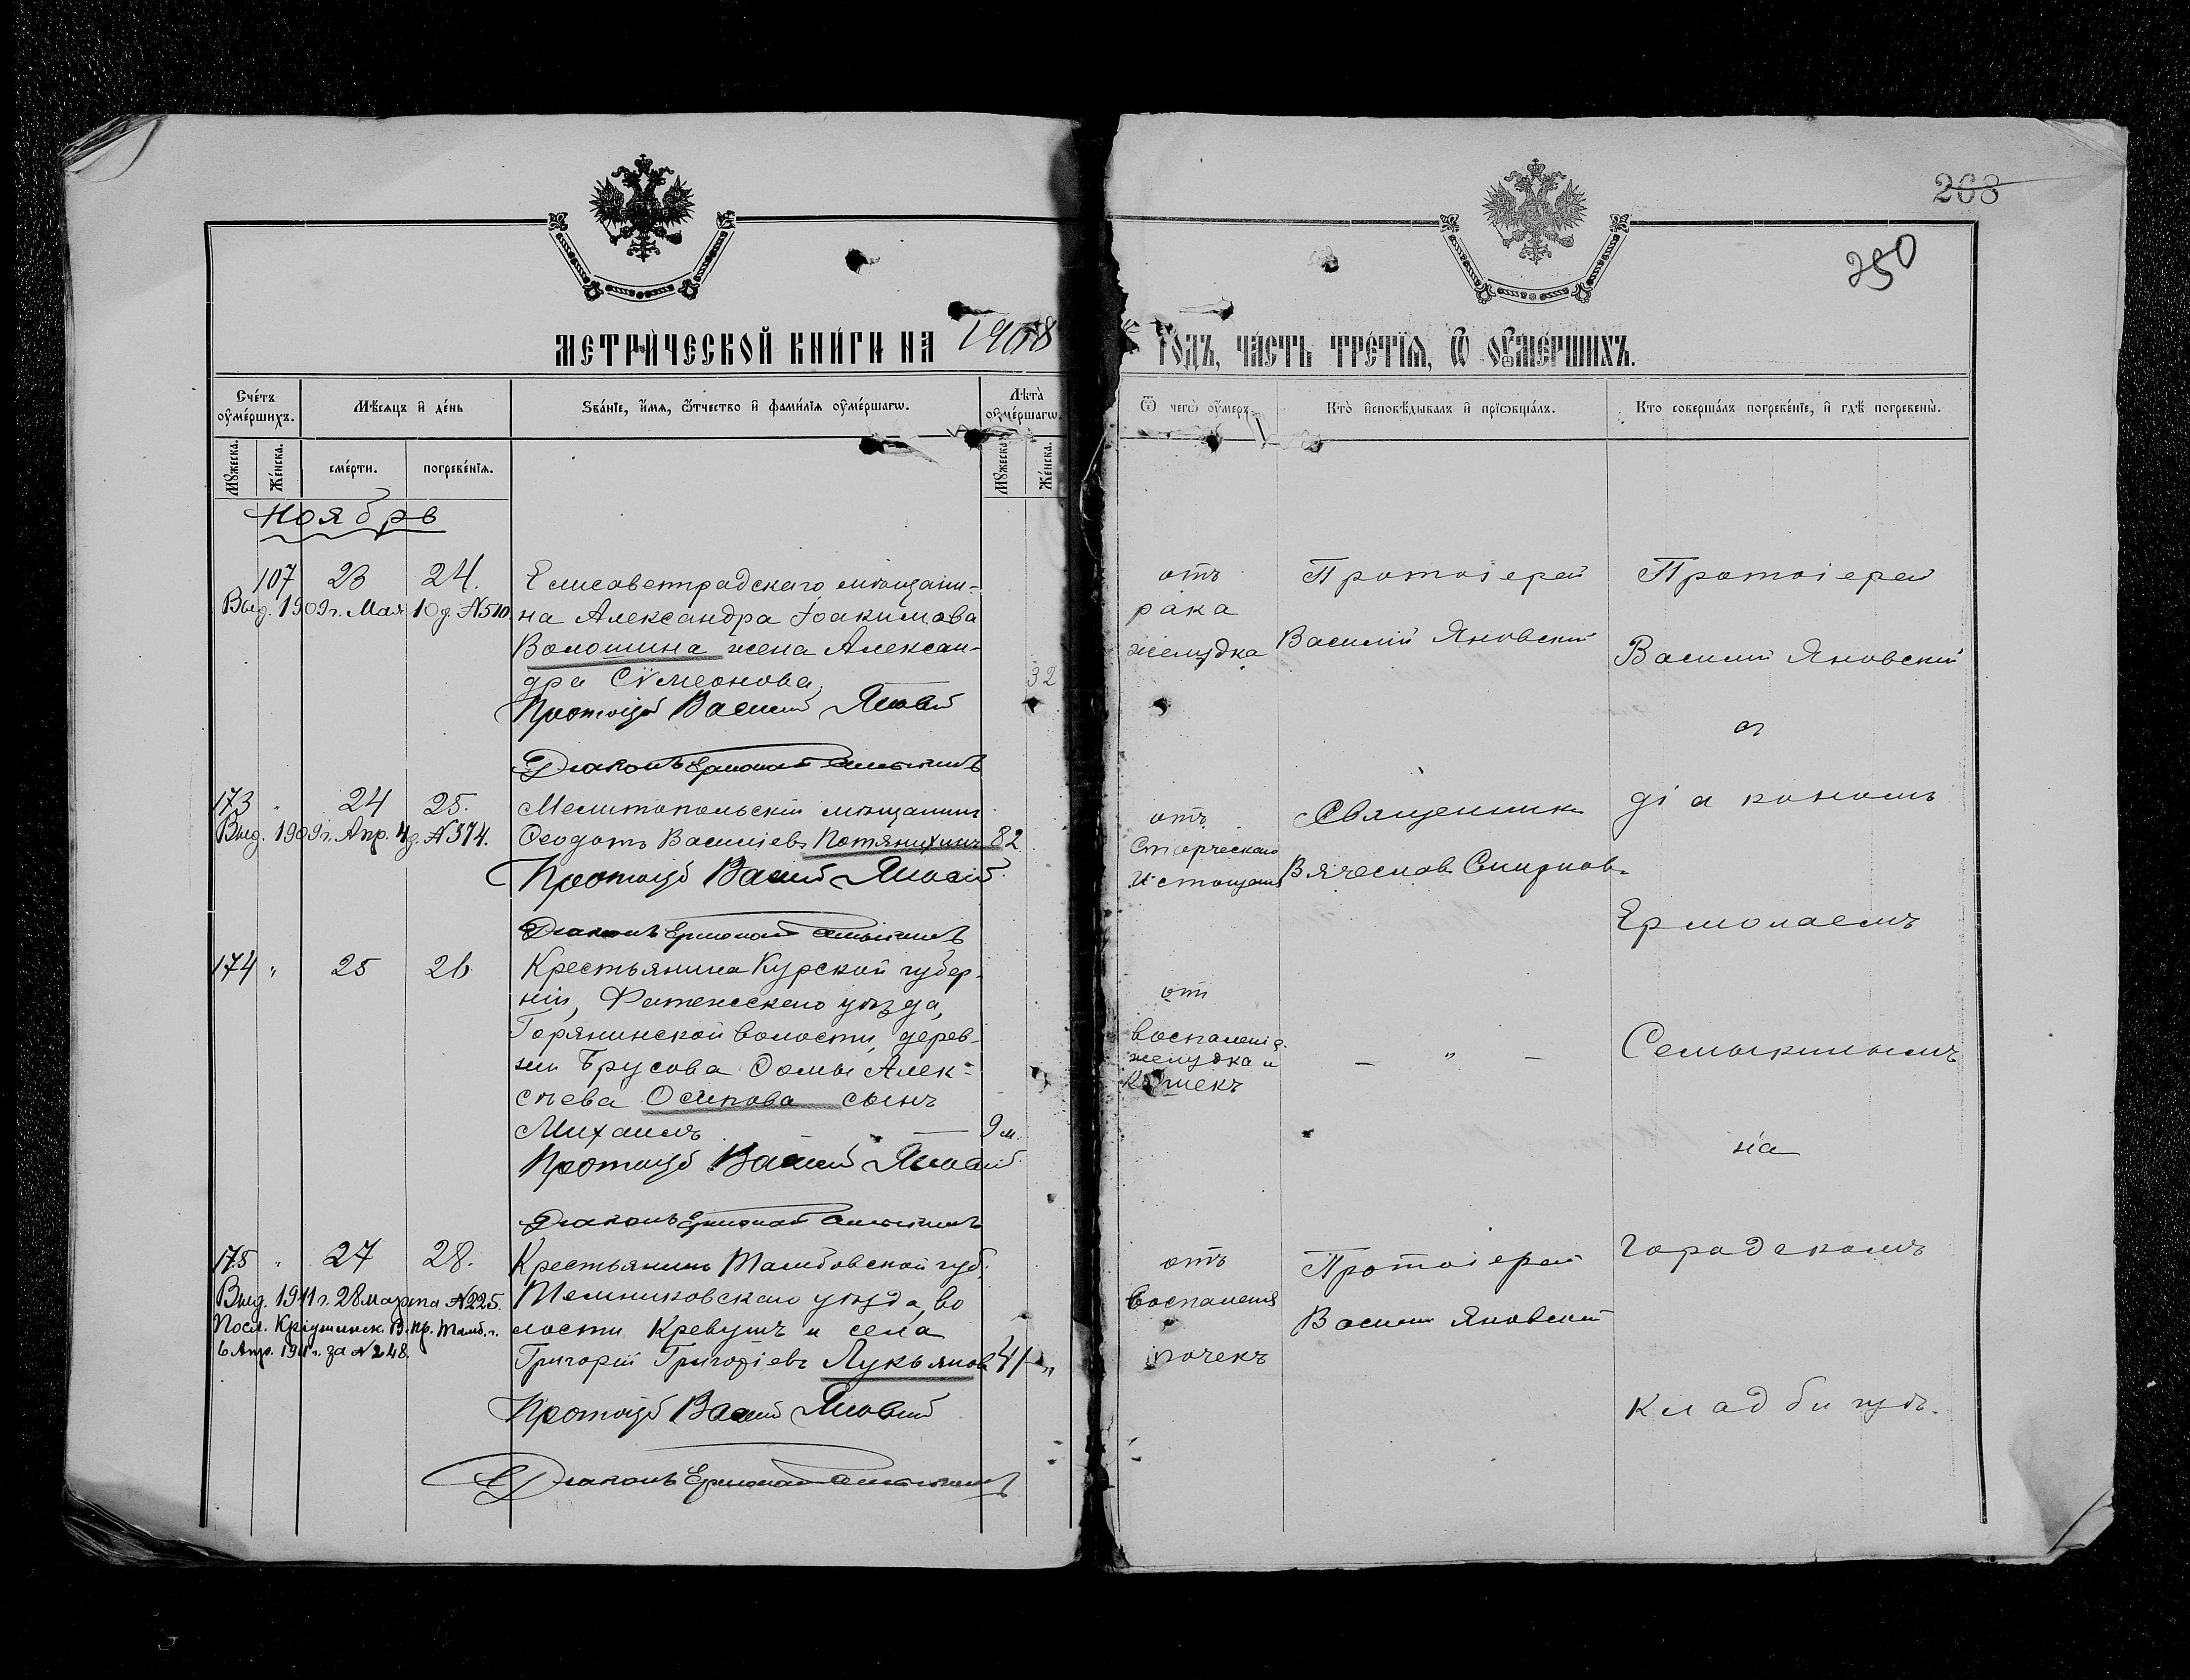 268
250
МЕТРИЧЕСКОЙ КНИГИ НА 1908 ГОДЪ, ЧАСТЬ ТРЕТІЯ, Ѿ ОУМЕРШИХЪ.
Счетъ оумершихъ.
Мѣсяцъ и день
Званіе, имя, ѿтчество и фамилія оумершагѡ.
Лѣта оумершагѡ.
Ѿ чегѡ оумеръ
Кто исповѣдывалъ и пріѡбщалъ.
Кто совершалъ погребеніе, и гдѣ погребены.
Мужеска.
Женска.
смерти.
погребенія.
Мужеска
Женска.
Ноябрь
107 23 24.
Выд. 1909г. Мая 10д. №510.
Елисаветградскаго мѣщани-
на Александра Іоакимова
Волошина жена Алексан-
дра Сѵмеонова 32
Протоіерей Василій Яновскій
Діаконъ Ермолай Семыкинъ
отъ
рака
желудка
Протоіерей
Василій Яновскій
Протоіерей
Василій Яновскій
съ
173 " 24 25.
Выд. 1909г. Апр. 4д. №374.
Мелитопольскій мѣщанинъ
Ѳеодотъ Василіевъ Потянихинъ 82
Протоіерей Василій Яновскій
Діаконъ Ермолай Семыкинъ
отъ
Старческаго
Истощенія
Священникъ
Вячеславъ Смирновъ
діакономъ
Ермолаемъ
174 " 25 26.
Крестьянина Курской губер-
ніи, Фатежскаго уѣзда,
Горянинской волости, дерев-
ни Брусова Ѳомы Алек-
сѣева Осипова сынъ
Михаилъ 9 м.
Протоіерей Василій Яновскій
Діаконъ Ермолай Семыкинъ
отъ
воспаленія
желудка и
кишекъ
— " —
Семыкинымъ
на
175 " 27 28.
Выд. 1911г. 28 марта №225.
6 Апр. 1911г. за №248.
Крестьянинъ Тамбовской губ.
Темниковскаго уѣзда, во
лости Кревушъ и села
Григорій Григоріевъ Лукьяновъ 41 "
Протоіерей Василій Яновскій
Діаконъ Ермолай Семыкинъ
отъ
воспаленія
почекъ
Протоіерей
Василій Яновскій
городскомъ
кладбищѣ.